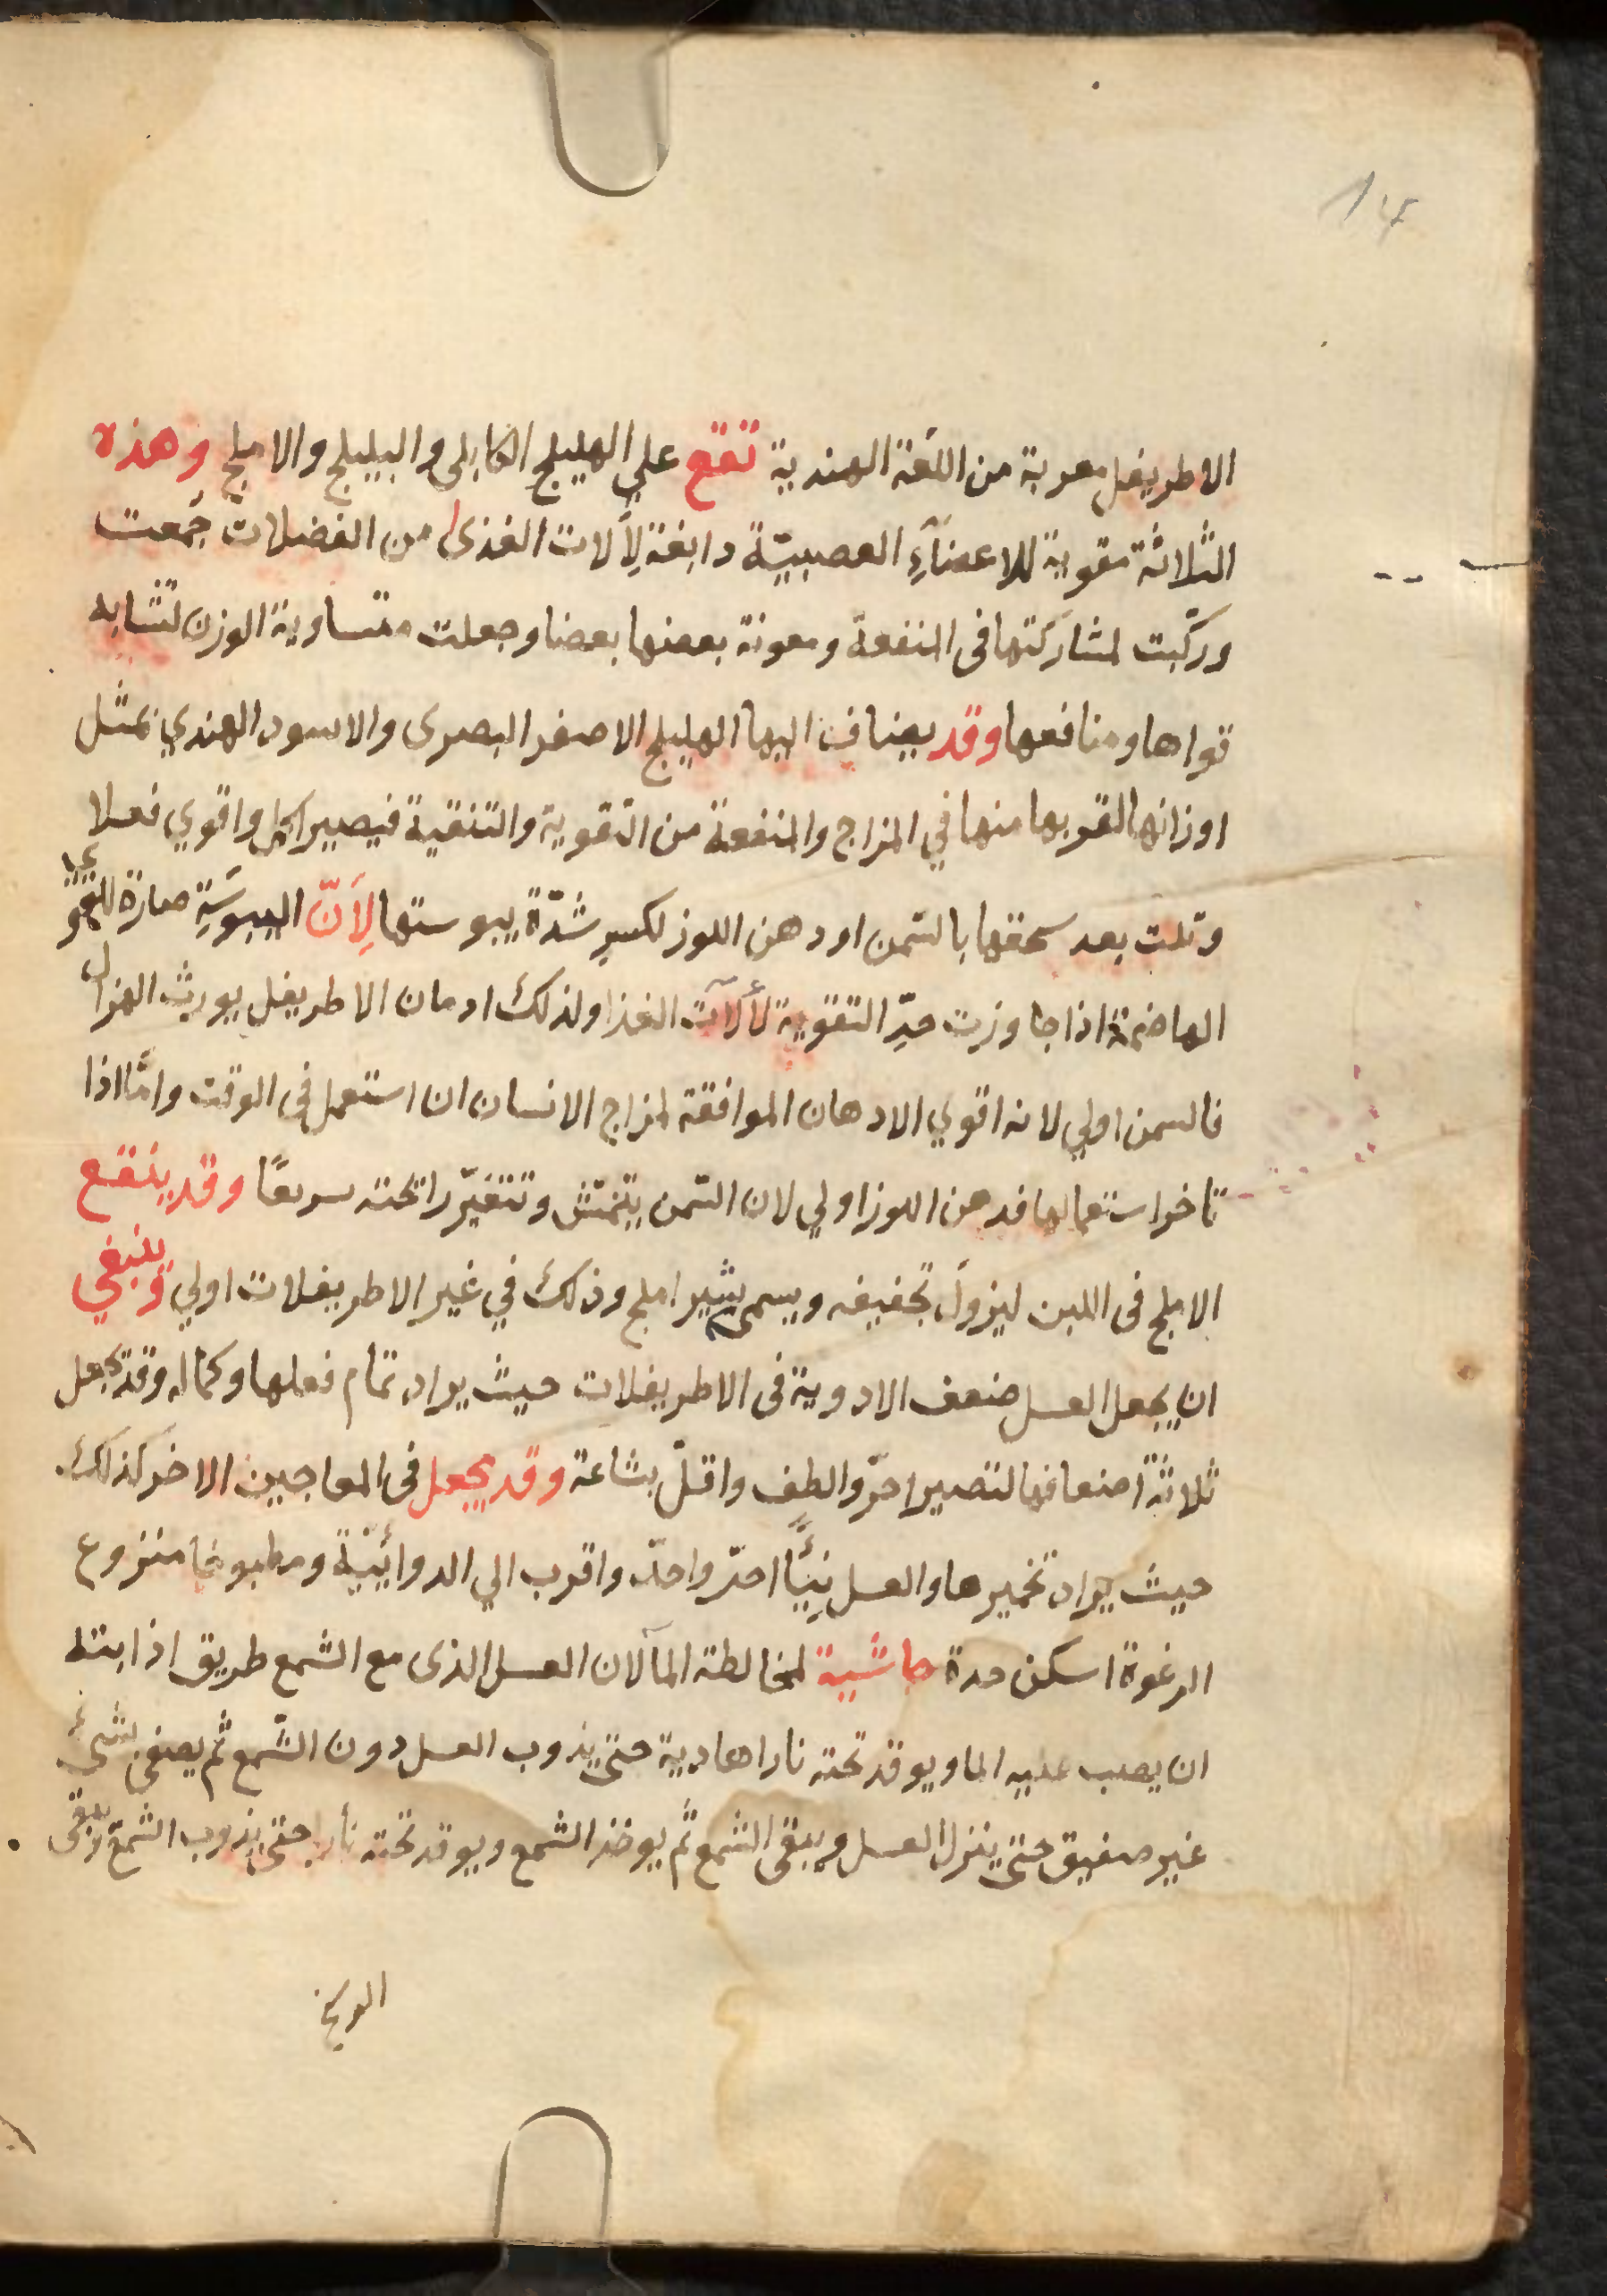 14
الاطريفل معربة من اللّغة الهندية تقع علي الهليلج الكابلى والبليلج والاملج وهذه
الثلاثة مقوية للاعضآءِ العصبيّة دابغة لِألات الغذى من الفضلات جُمعت
وركّبت لمشاركتها فى المنفعة ومعونة بعضها بعضا وجعلت متساوية الوزن لتشابه
قواها ومنافعها وقد يضاف اليها الهليلج الاصفر البصرى والاسود الهندي بمثل
اوزانها لقربها منها في المزاج والمنفعة من التقوية والتنقية فيصير اكمل واقوي فعلا
وتلت بعد سحقها بالسّمن او دهن اللوز لكسرِ شدّة يبوستها لِأنّ اليبوسَةِ ضارة للقوي
الهاضمة اذا جاوزت حدّ التقوية لألآت الغذا ولذلك ادمان الاطريفل يورث الهزال
فالسمن اولي لانه اقوي الادهان الموافقة لمزاج الانسان ان استعمل فى الوقت وامّا اذا
تاخر استعمالها فدهن اللوز اولي لان السّمن يتخمّش وتتغيّر رائحته سريعًا وقد ينقع
الاملج فى اللبن ليزولَ تجفيفه ويسمى بشير املج وذلك في غير الاطريفلات اولي وينبغي
ان يجعل العسل ضعف الادوية فى الاطريفلات حيث يراد تمام فعلها وكماله وقد تجعل
ثلاثة اضعافها لتصير احرّ والطف واقلّ بشاعة وقد يجعل فى المعاجين الاخر كذلك
حيث يراد تخميرها والعسل نِيًّا احرّ واحدّ واقرب الي الدوائيّة ومطبوخا منزوع
الرغوة اسكن حدة حاشية لمخالطة المآ لان العسل الذى مع الشمع طريق اذابته
ان يصب عليه الما ويوقد تحته نارا هادية حتى يذوب العسل دون الشّمع ثم يصفى بشئ
غير صفيق حتى ينزل العسل ويبقى الشمع ثم يوخذ الشمع ويوقد تحته نارا حتى يذوب الشمع ويبقى
الوسخ